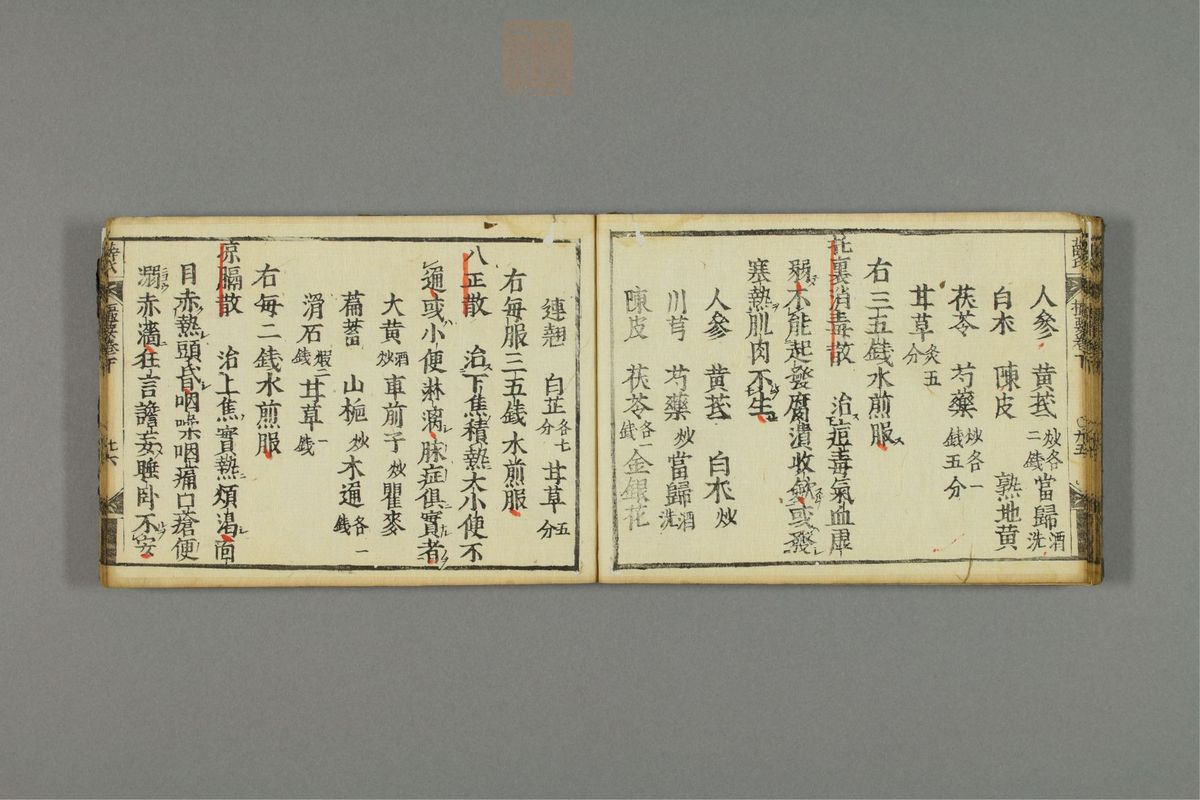 人參 黃茋炒各二錢 當歸酒洗
白朮 陳皮 熟地黃
茯苓 芍藥炒各一錢五分
甘草炙五分
右三五錢水煎服ス
托裏消毒散 治ス疽毒氣血虛
弱不能起發腐潰收斂或發
寒熱肌肉不生
人參 黃茋 白朮炒
川芎 芍藥炒 當歸酒洗
陳皮 茯苓各一錢 金銀花
連翹 白芷各七分 甘草五分
右每服三五錢水煎服
八正散 治ス下焦積熱大小便不
通或小便淋漓脉症俱實者
大黃酒炒 車前子炒 瞿麥
萹蓄 山梔炒 木通各一錢
滑石煅二錢 甘草一錢
右每二錢水煎服
凉膈散 治上焦實熱煩渴面
目赤熱頭昏咽燥咽痛口瘡便
溺赤濇狂言譫妄睡卧不安